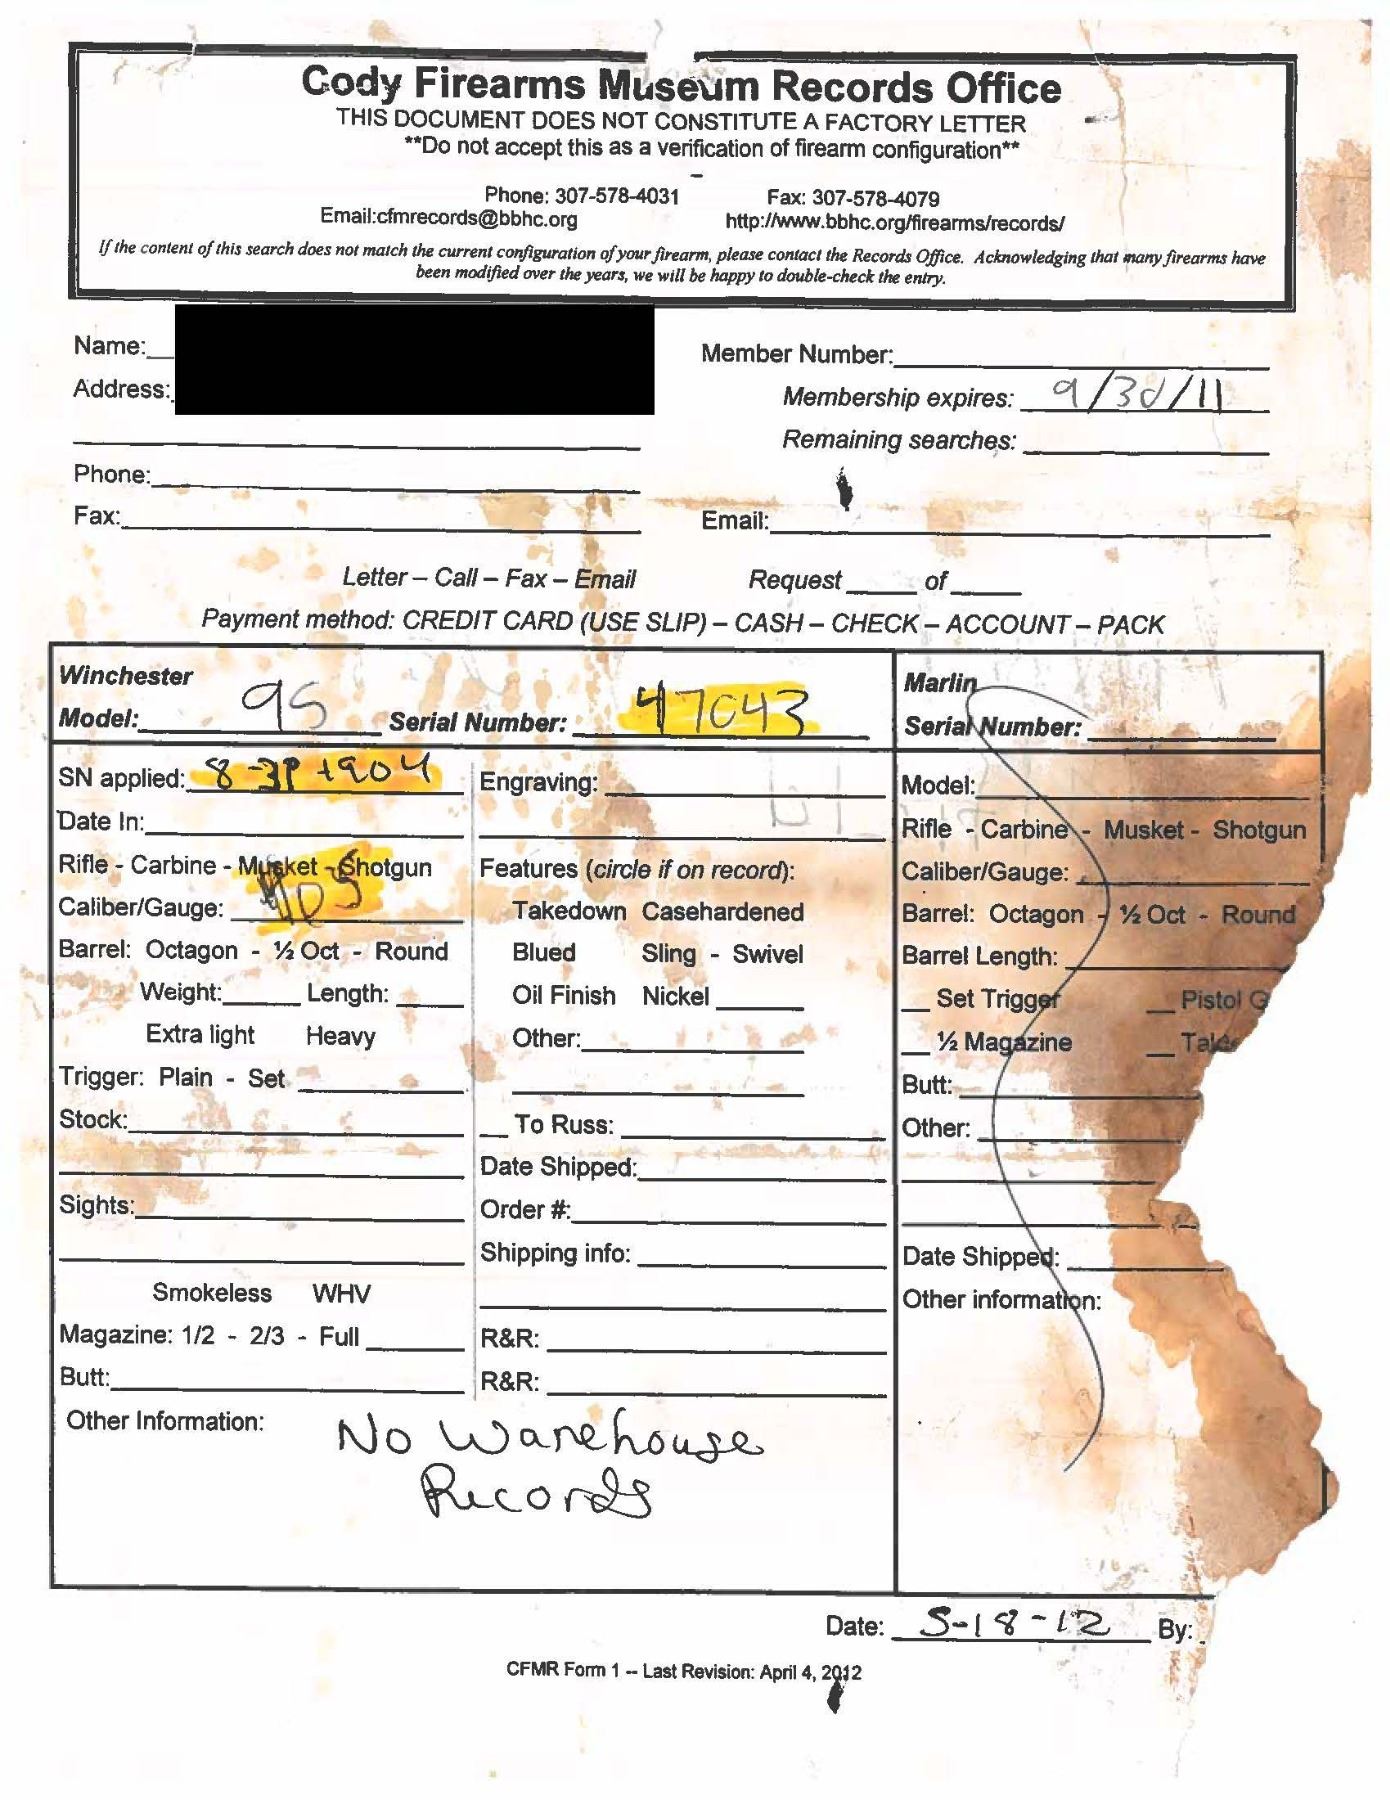 Cody Firearms Museum Records Office
THIS DOCUMENT DOES NOT CONSTITUTE A FACTORY LETTER
**Do not accept this as a verification of firearm configuration**
Phone: 307-578-4031 Fax: 307-578-4079
Email:cfmrecords@bbhc.org http://www.bbhc.org/firearms/records/
If the content of this search does not match the current configuration of your firearm, please contact the Records Office. Acknowledging that many firearms have
been modified over the years, we will be happy to double-check the entry.
Name:
Member Number:
Address:
Membership expires: 9/30/11
Remaining searches:
Phone:
Fax:
Email:
Letter – Call – Fax – Email Request of
Payment method: CREDIT CARD (USE SLIP) – CASH – CHECK – ACCOUNT – PACK
Winchester
Model: 95 Serial Number: 47043
SN applied: 1904
Date In:
Rifle - Carbine - Musket - Shotgun
Caliber/Gauge:
Barrel: Octagon - ½ Oct - Round
Weight: Length:
Extra light Heavy
Trigger: Plain - Set
Stock:
Sights:
Smokeless WHV
Magazine: 1/2 - 2/3 - Full
Butt:
Engraving:
Features (circle if on record):
Takedown Casehardened
Blued Sling - Swivel
Oil Finish Nickel
Other:
To Russ:
Date Shipped:
Order #:
Shipping info:
R&R:
R&R:
Other Information: No Warehouse
Records
Marlin
Serial Number:
Model:
Rifle - Carbine - Musket - Shotgun
Caliber/Gauge:
Barrel: Octagon - ½ Oct - Round
Barrel Length:
Set Trigger Pistol G
½ Magazine
Butt:
Other:
Date Shipped:
Other information:
Date: 5-18-12 By:
CFMR Form 1 -- Last Revision: April 4, 2012